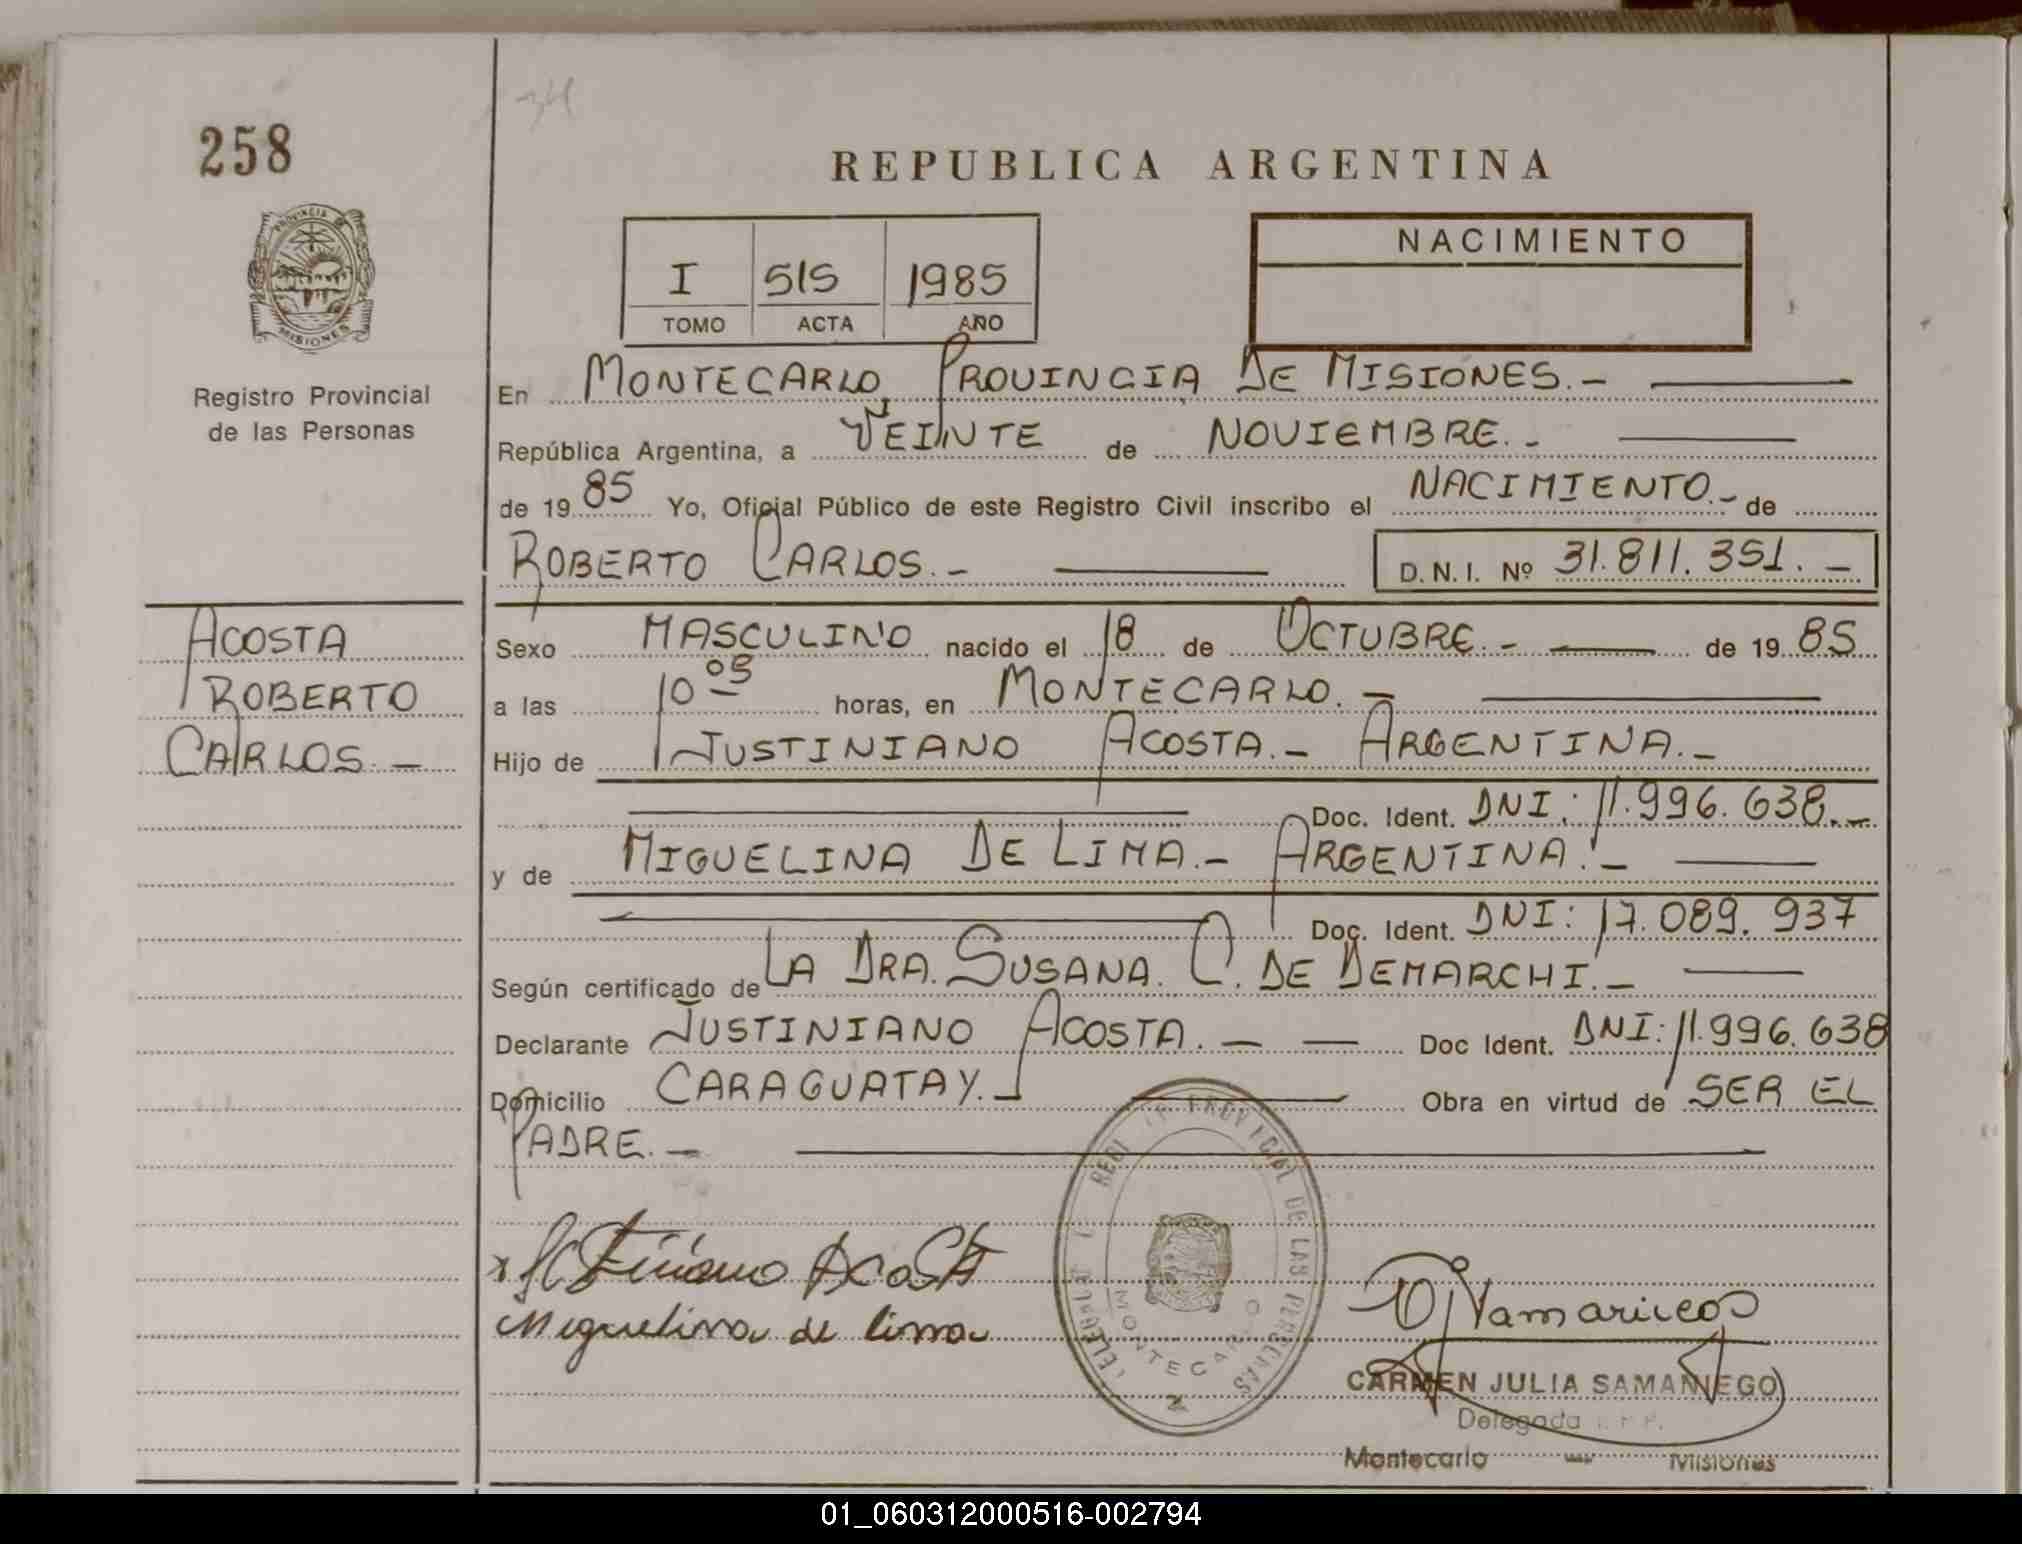 258
REPUBLICA ARGENTINA
PROVINCIA DE MISIONES
Registro Provincial
de las Personas
I 515 1985
TOMO ACTA AÑO
NACIMIENTO
En MONTECARLO, PROVINCIA DE MISIONES.-
República Argentina, a VEINTE de NOVIEMBRE.-
de 19 85 Yo, Oficial Público de este Registro Civil inscribo el NACIMIENTO.- de
ROBERTO CARLOS.- D.N.I. Nº 31.811.351.-
ACOSTA
ROBERTO
CARLOS.-
Sexo MASCULINO nacido el 18 de OCTUBRE.- de 19 85
a las 10 horas, en MONTECARLO.-
Hijo de JUSTINIANO ACOSTA.- ARGENTINA.-
Doc. Ident. DNI: 11.996.638.-
y de MIGUELINA DE LIMA.- ARGENTINA.-
Doc. Ident. DNI: 17.089.937
Según certificado de LA DRA. SUSANA. C. DE DEMARCHI.-
Declarante JUSTINIANO ACOSTA.- Doc Ident. DNI: 11.996.638
Domicilio CARAGUATAY.- Obra en virtud de SER EL
PADRE.-
Acosta
Miguelina de lima
PROVINCIAL DE LAS PERSONAS
MONTECARLO
CARMEN JULIA SAMANIEGO
Delegada
Montecarlo - Misiones
01_060312000516-002794